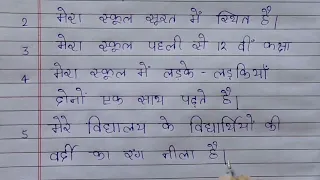 2 मेरा स्कूल सूरत में स्थित है।
3 मेरा स्कूल पहली से 12 वीं कक्षा
4 मेरा स्कूल में लड़के - लड़कियाँ
दोनों एक साथ पढ़ते है।
5 मेरे विद्यालय के विद्यार्थियों की
वर्दी का रंग नीला है।